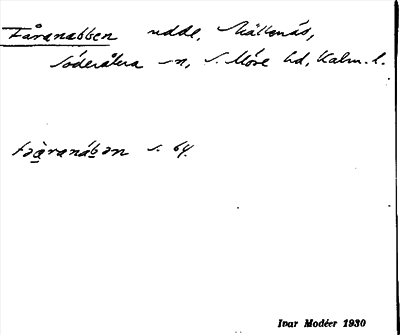 Fåranabben udde, Skäkenäs,
Söderåkra sn, S. Möre hd, Kalm. l.
s. 64.
Ivar Modéer 1930